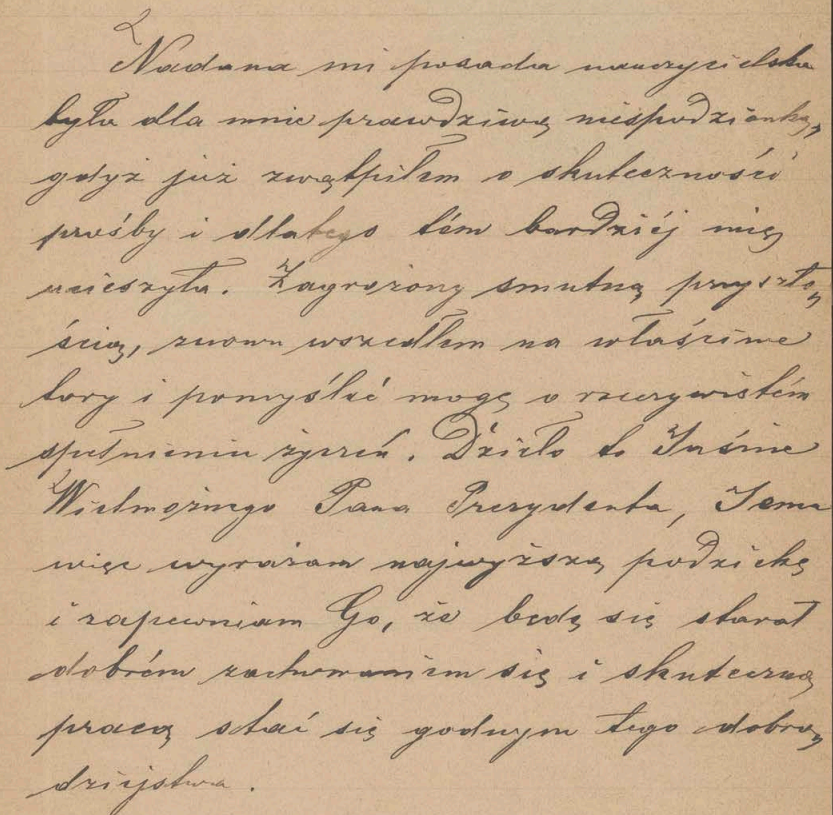 Nadana mi posada nauczycielska
była dla mnie prawdziwą niespodzianką,
gdyż już zwątpiłem o skuteczności
prośby i dlatego tém bardziéj mię
ucieszyła. Zagrożony smutną przyszło„
ścią, znowu wszedłem na właściwe
tory i pomyśléć mogę o rzeczywistém
spełnieniu życzeń. Dzieło to Jaśnie
Wielmożnego Pana Prezydenta, Jemu
więc wyrażam najwyższą podziękę
i zapewniam Go, że będę się starał
dobrém zachowaniem się i skuteczną
pracą stać się godnym tego dobro„
dziejstwa.